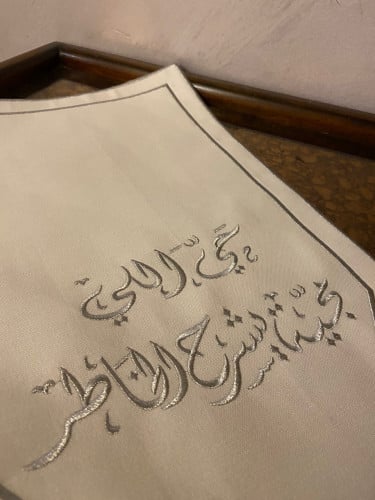 حيّ اللي
تشرح الخاطر